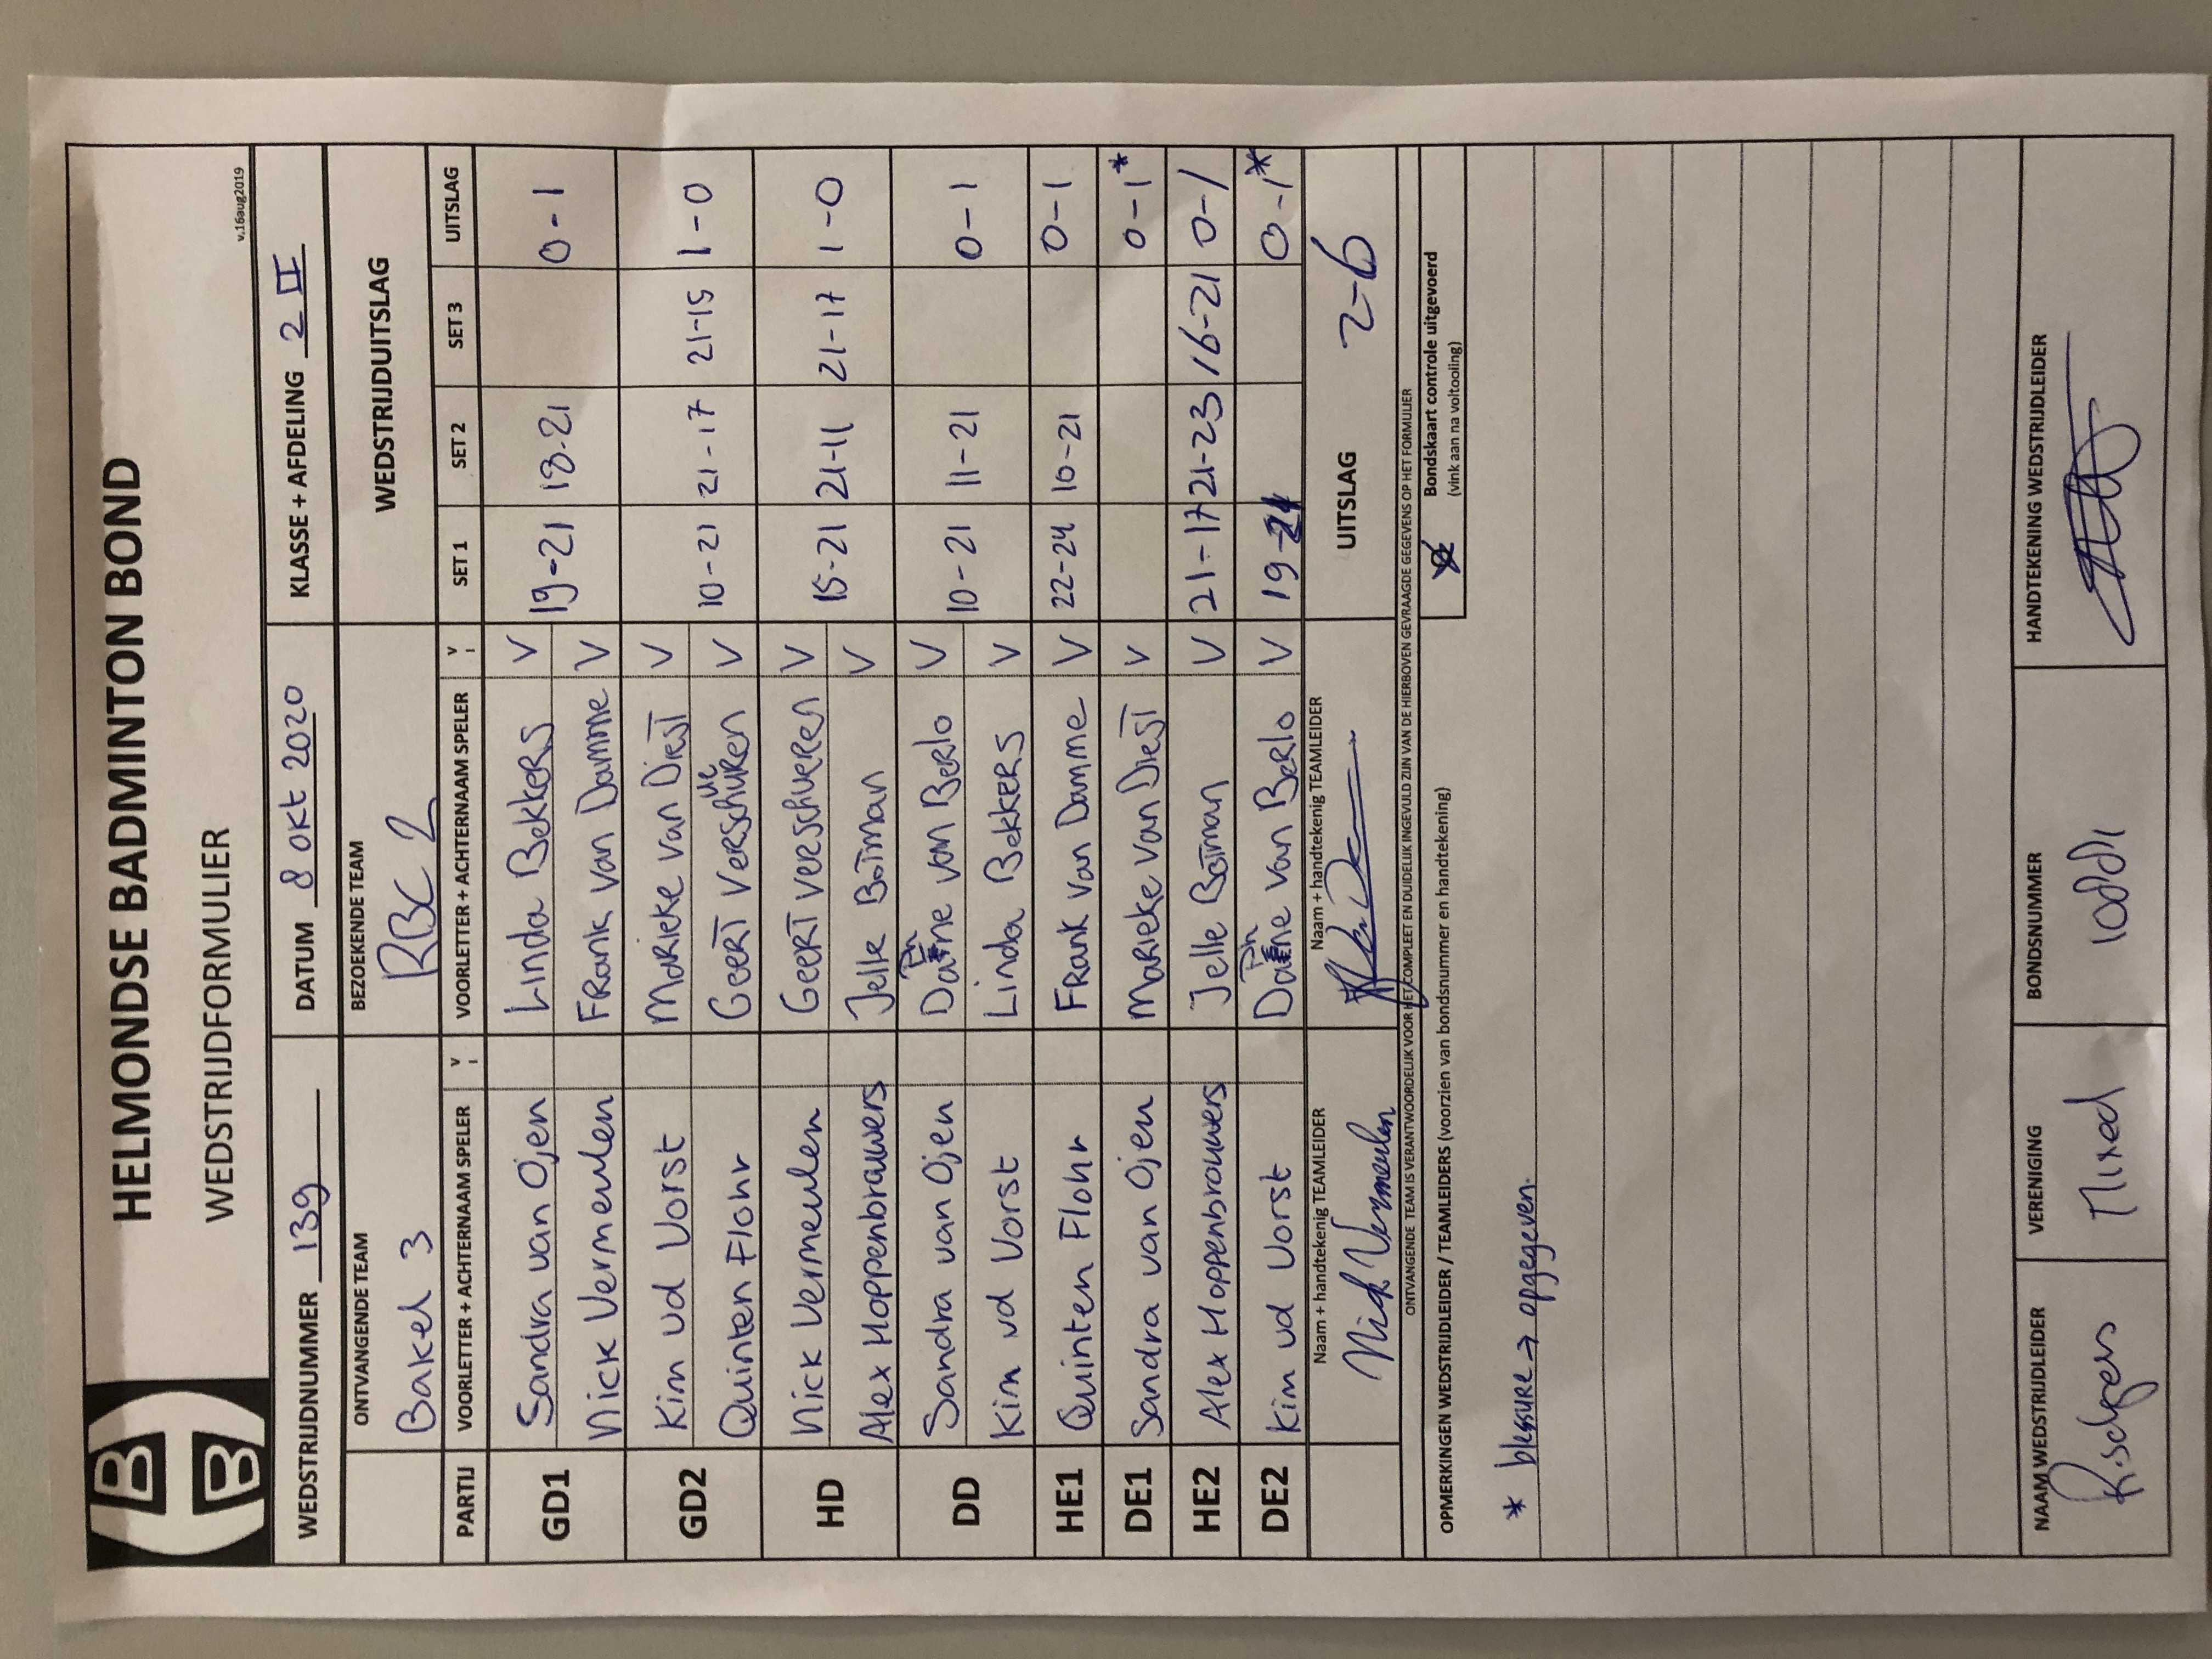 HELMONDSE BADMINTON BOND
WEDSTRIJDFORMULIER
v.16aug2019
B
B
WEDSTRIJDNUMMER 139 DATUM 8 okt 2020 KLASSE + AFDELING 2 II
ONTVANGENDE TEAM BEZOEKENDE TEAM WEDSTRIJDUITSLAG
Bakel 3 RBC 2
PARTIJ VOORLETTER + ACHTERNAAM SPELER V VOORLETTER + ACHTERNAAM SPELER V SET 1 SET 2 SET 3 UITSLAG
GD1 Sandra van Ojen Linda Bekkers V 19-21 18-21 0-1
Nick Vermeulen Frank van Damme V
GD2 Kim vd Vorst Marieke van Diest V 10-21 21-17 21-15 1-0
Quinten Flohr Geert Verschueren V
HD Nick Vermeulen Geert Verschueren V 15-21 21-11 21-17 1-0
Alex Hoppenbrouwers Jelle Botman V
DD Sandra van Ojen van Berlo V 10-21 11-21 0-1
Kim vd Vorst Linda Bekkers V
HE1 Quinten Flohr Frank van Damme V 22-24 10-21 0-1
DE1 Sandra van Ojen Marieke van Diest V 0-1*
HE2 Alex Hoppenbrouwers Jelle Botman V 21-17 21-23 16-21 0-1
DE2 Kim vd Vorst van Berlo V 19- 0-1*
Naam + handtekenig TEAMLEIDER Naam + handtekenig TEAMLEIDER UITSLAG 2-6
Nick Vermeulen
ONTVANGENDE TEAM IS VERANTWOORDELIJK VOOR HET COMPLEET EN DUIDELIJK INGEVULD ZIJN VAN DE HIERBOVEN GEVRAAGDE GEGEVENS OP HET FORMULIER
Bondskaart controle uitgevoerd
(vink aan na voltooling)
OPMERKINGEN WEDSTRIJDLEIDER / TEAMLEIDERS (voorzien van bondsnummer en handtekening)
* blessure → opgegeven.
NAAM WEDSTRIJDLEIDER VERENIGING BONDSNUMMER HANDTEKENING WEDSTRIJDLEIDER
Mixed